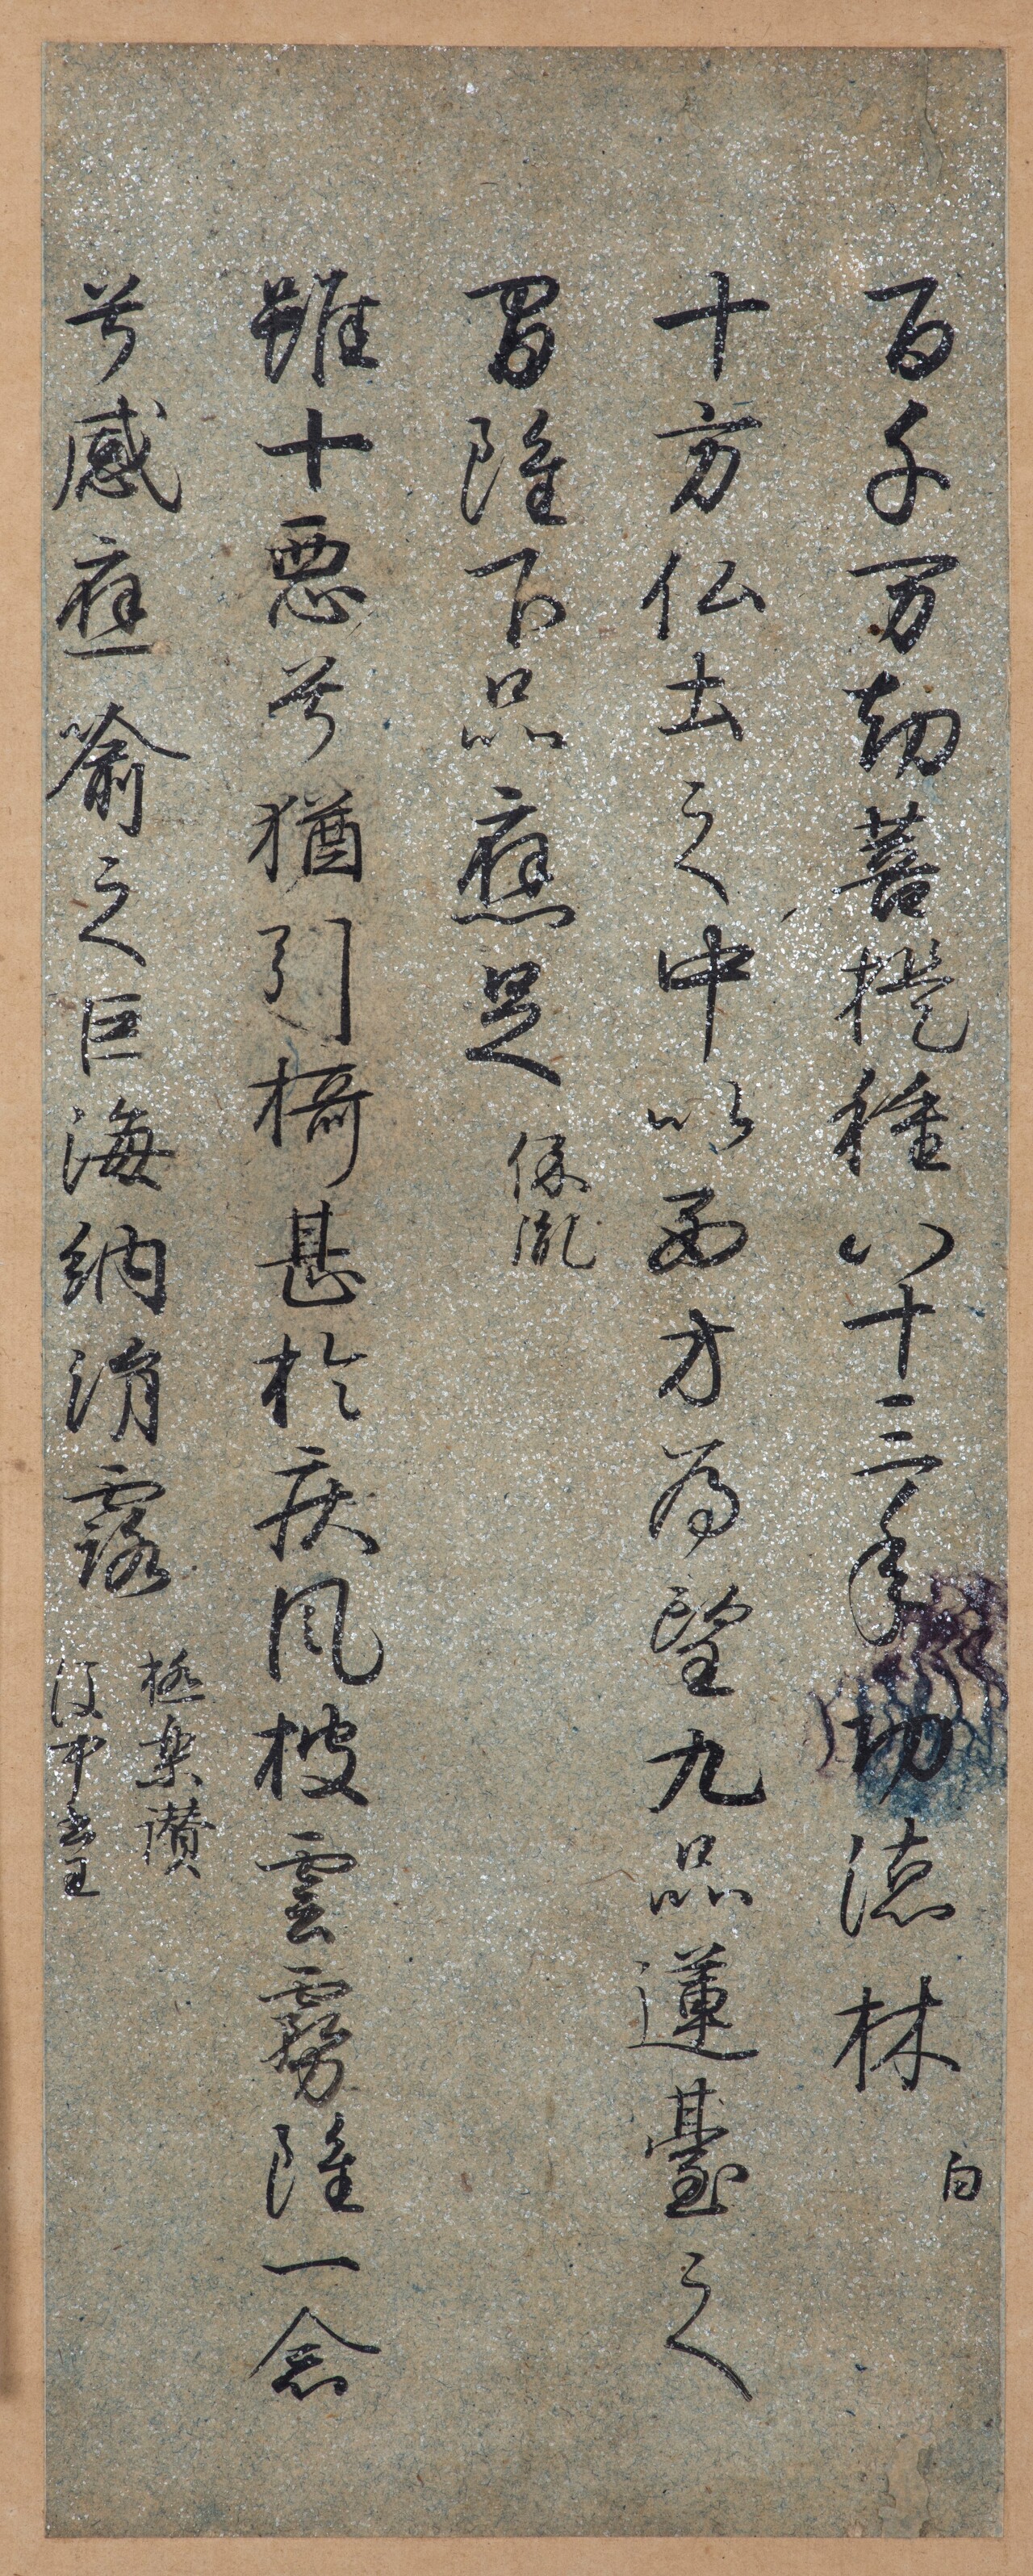 百千万劫菩提種八十三年功徳林 白
十方仏土之中以西方為望九品蓮臺之
間雖下品應足 保胤
雖十悪兮猶引摂甚於疾風披雲霧雖一念
兮感應喩之巨海納涓露 極楽讃
後中書王